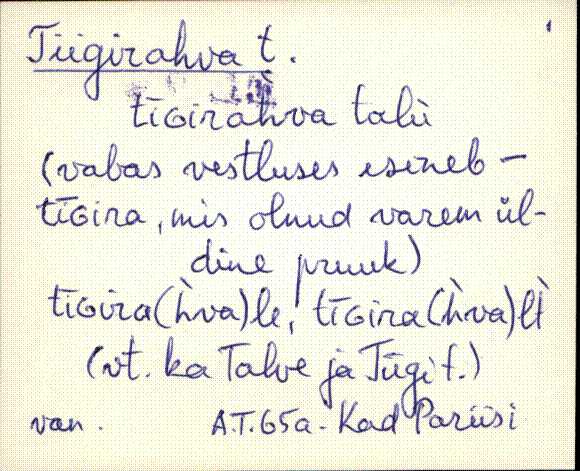 Tiigirahva t.
tīɢirahva talu
(vabas vestluses esineb –
tīɢira, mis olnud varem ül-
dine pruuk)
tīɢira(h̀va)le, tīɢira(h̀va)lt̀
(vt. ka Talve ja Tiigi t.)
van. A.T. 65a. - Kad Pariisi